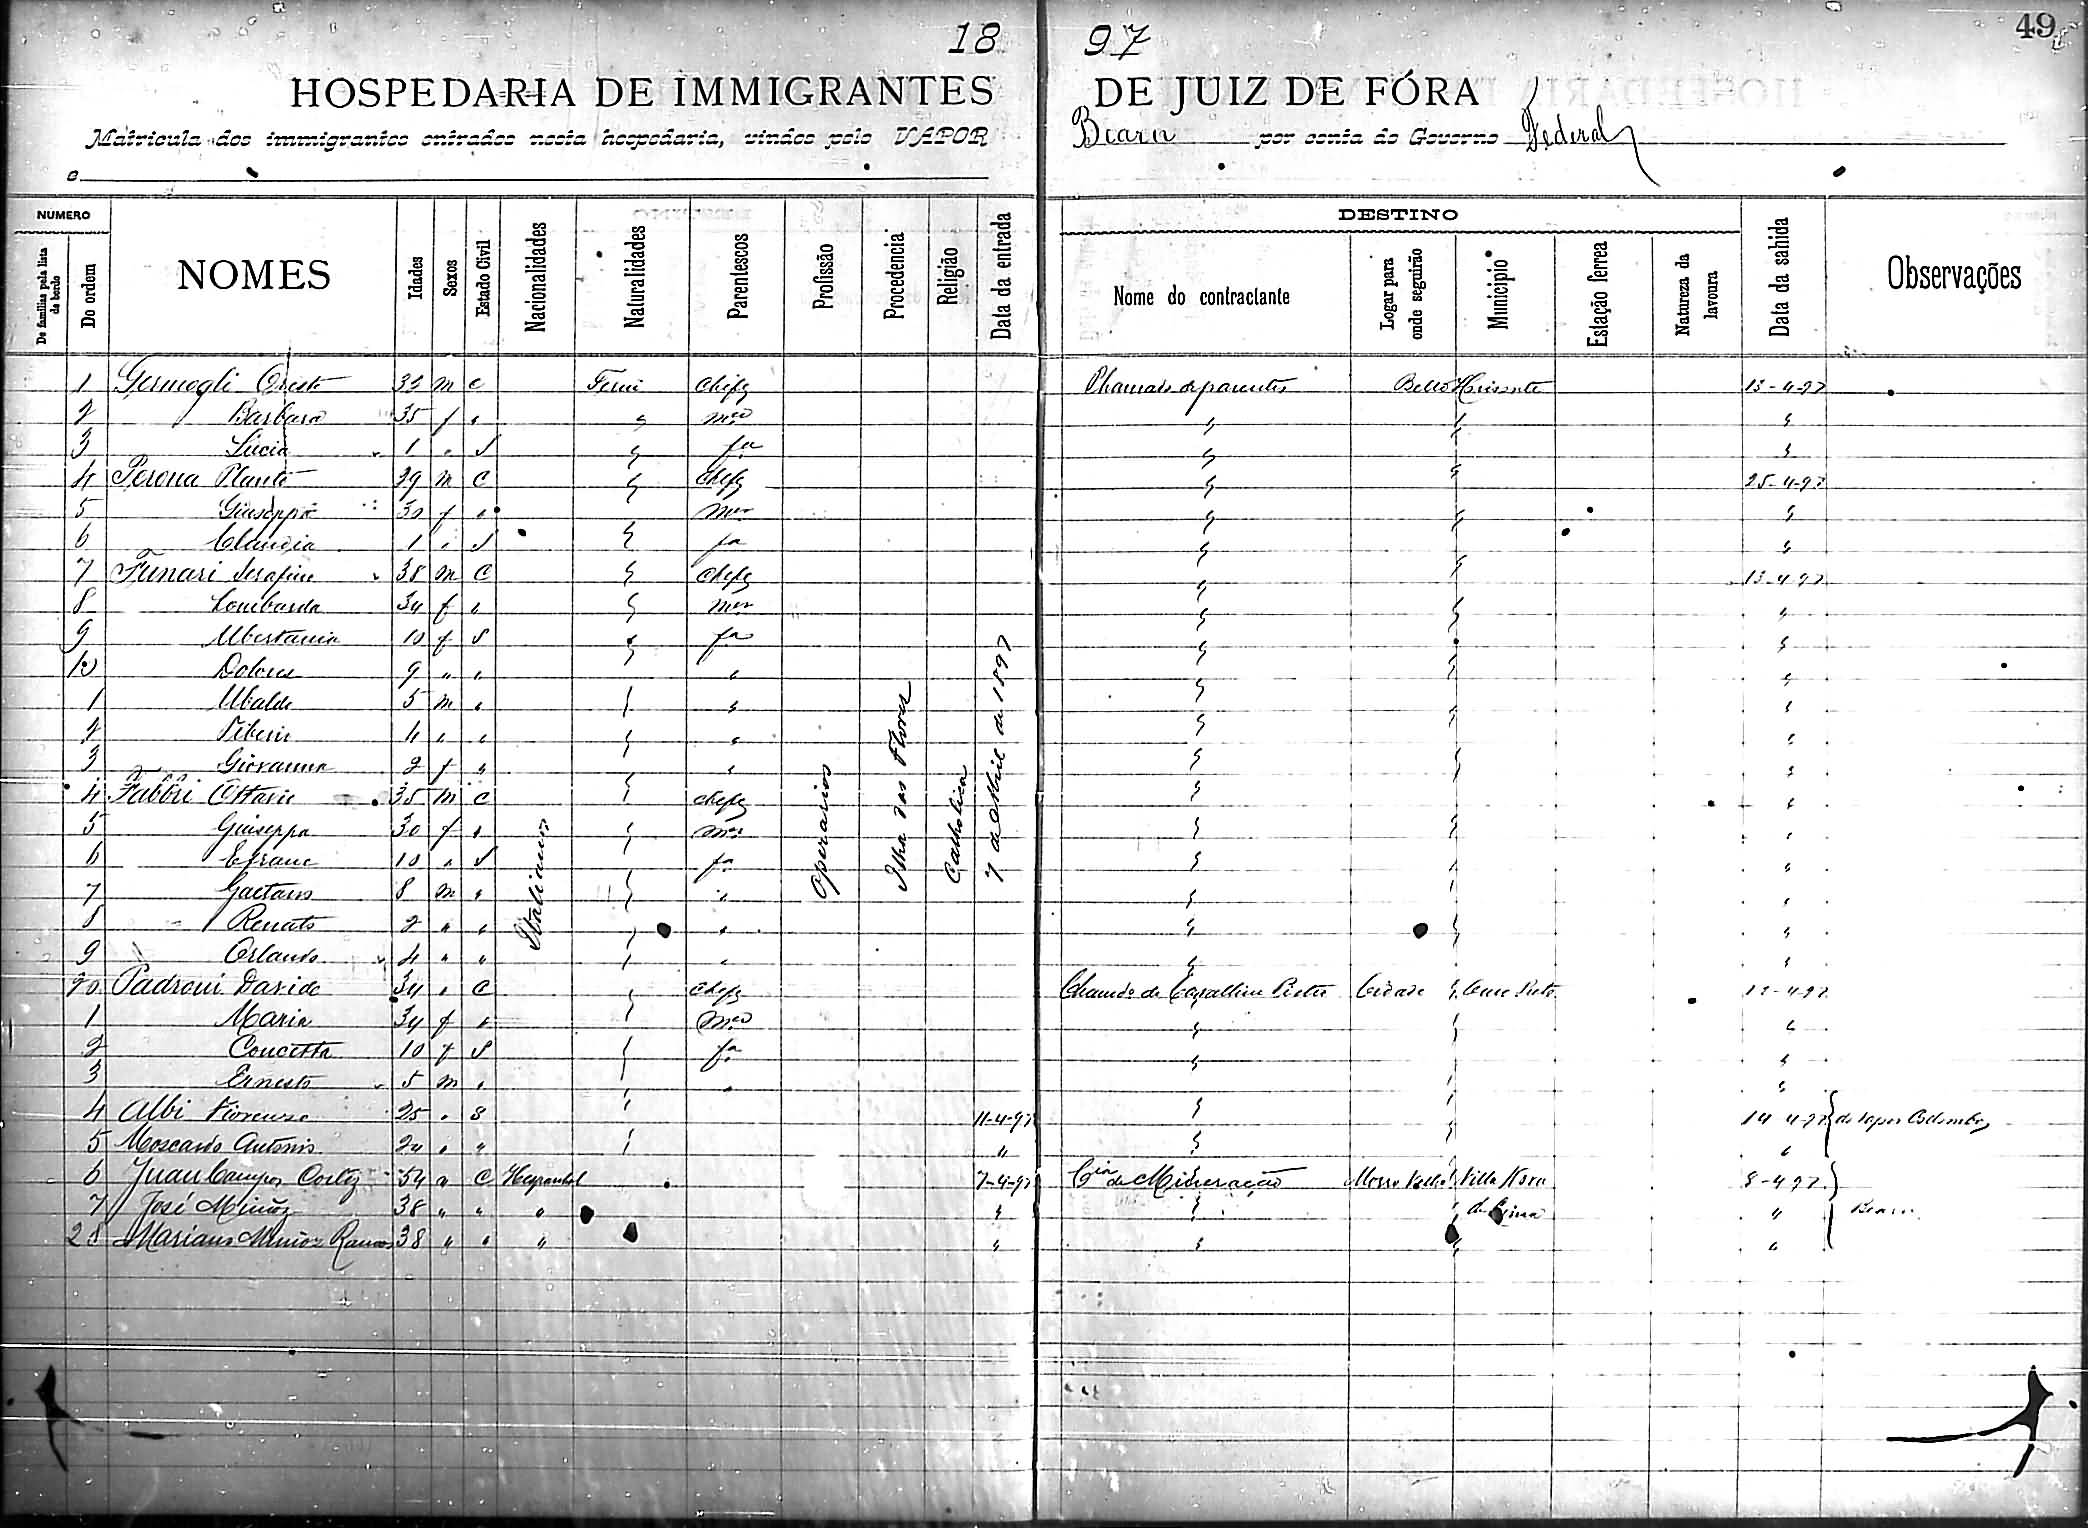 18 97
49
HOSPEDARIA DE IMMIGRANTES DE JUIZ DE FÓRA
Matricula dos immigrantes entrados nesta hospedaria, vindos pelo VAPOR Bearn por conta do Governo Federal
e
NUMERO
De familias pela lista de bordo
Do ordem
NOMES
Idades
Sexos
Estado Civil
Nacionalidades
Naturalidades
Parentescos
Profissão
Procedencia
Religião
Data da entrada
DESTINO
Nome do contractante
Logar para onde seguirão
Municipio
Estação ferrea
Natureza da lavoura
Data da sahida
Observações
1 Germogli Oreste 32 m c chefe Chamado de parentes Bello Horisonte 13-4-97
2 Barbara 35 f " mer " " "
3 Lucia 1 " S " fa " " "
4 Perona 29 m C " chefe " " 25-4-97
5 30 f " mer " " "
6 Claudia 1 " S " fa " " "
7 Funari Serafino 38 m C " chefe " " 13-4-97
8 Lombarda 34 f " " mer " " "
9 10 f S " fa " " "
10 Dolores 9 " " " " " "
1 Ubaldo 5 m " " " " " "
2 4 " " " " " " "
3 Giovanna 2 f " " " " " "
4 Fabbri Ottavio 35 m C " chefe " " "
5 Giuseppa 30 f " " mer " " "
6 10 " S fa " " "
7 Gaetano 8 m " " " " " "
8 Renato 2 " " " " " " "
9 Orlando 4 " " " " " "
20 Padroni Davide 34 " C " chefe Chamado de Cavallieri Cidade Ouro Preto
1 Maria 34 f " " mer " " "
2 Concetta 10 f S " fa " "
3 Ernesto 5 m " " " " "
4 Albi Fiorenzo 25 " S " 11-4-97 " " 14 4-97 do vapor Colombo
5 Moscardo Antonio 24 " " " " " " "
6 Juan Campos Cortez 54 " C Hespanhol 7-4-97 Cia de Mineração Morro Velho Villa Nova 8-4 97
7 José Muñoz 38 " " " " " de Lima " Bearn
28 Mariano Muñoz Ramos 38 " " " " " " "
Italianos
Operarios
Ilha das Flores
Catholica
7 de Abril de 1897